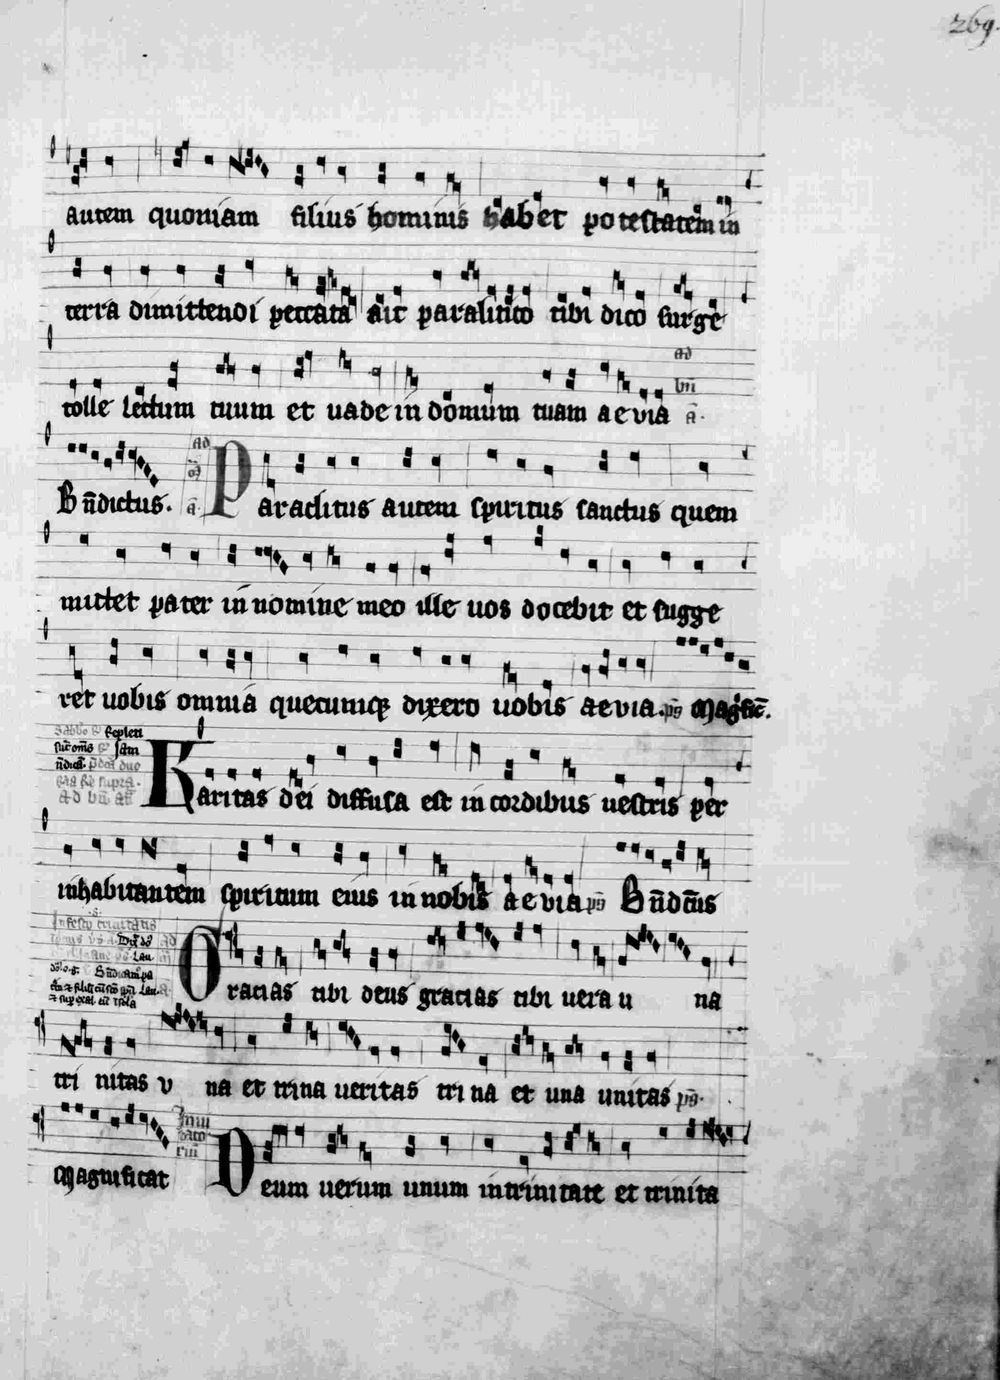 269.
autem quoniam filius hominis habet potestatem in
terra dimittendi peccata ait paralitico tibi dico surge
ad
tolle lectum tuum et uade in domum tuam aeuia a̅.
ad
Bn̅dictus. a̅. Paraclitus autem spiritus sanctus quem
mittet pater in nomine meo ille uos docebit et sugge
ret uobis omnia quecumq dixero uobis aeuia. ps̅ Magn̅ficat̅.
Karitas dei diffusa est in cordibus uestris per
inhabitantem spiritum eius in nobis aeuia ps̅ Bn̅dctus
In festo trinitatis
Gracias tibi deus gracias tibi uera u na
tri nitas v na et trina ueritas tri na et una unitas ps̅.
Inui
tato
riu̅
Magnificat Deum uerum unum in trinitate et trinita